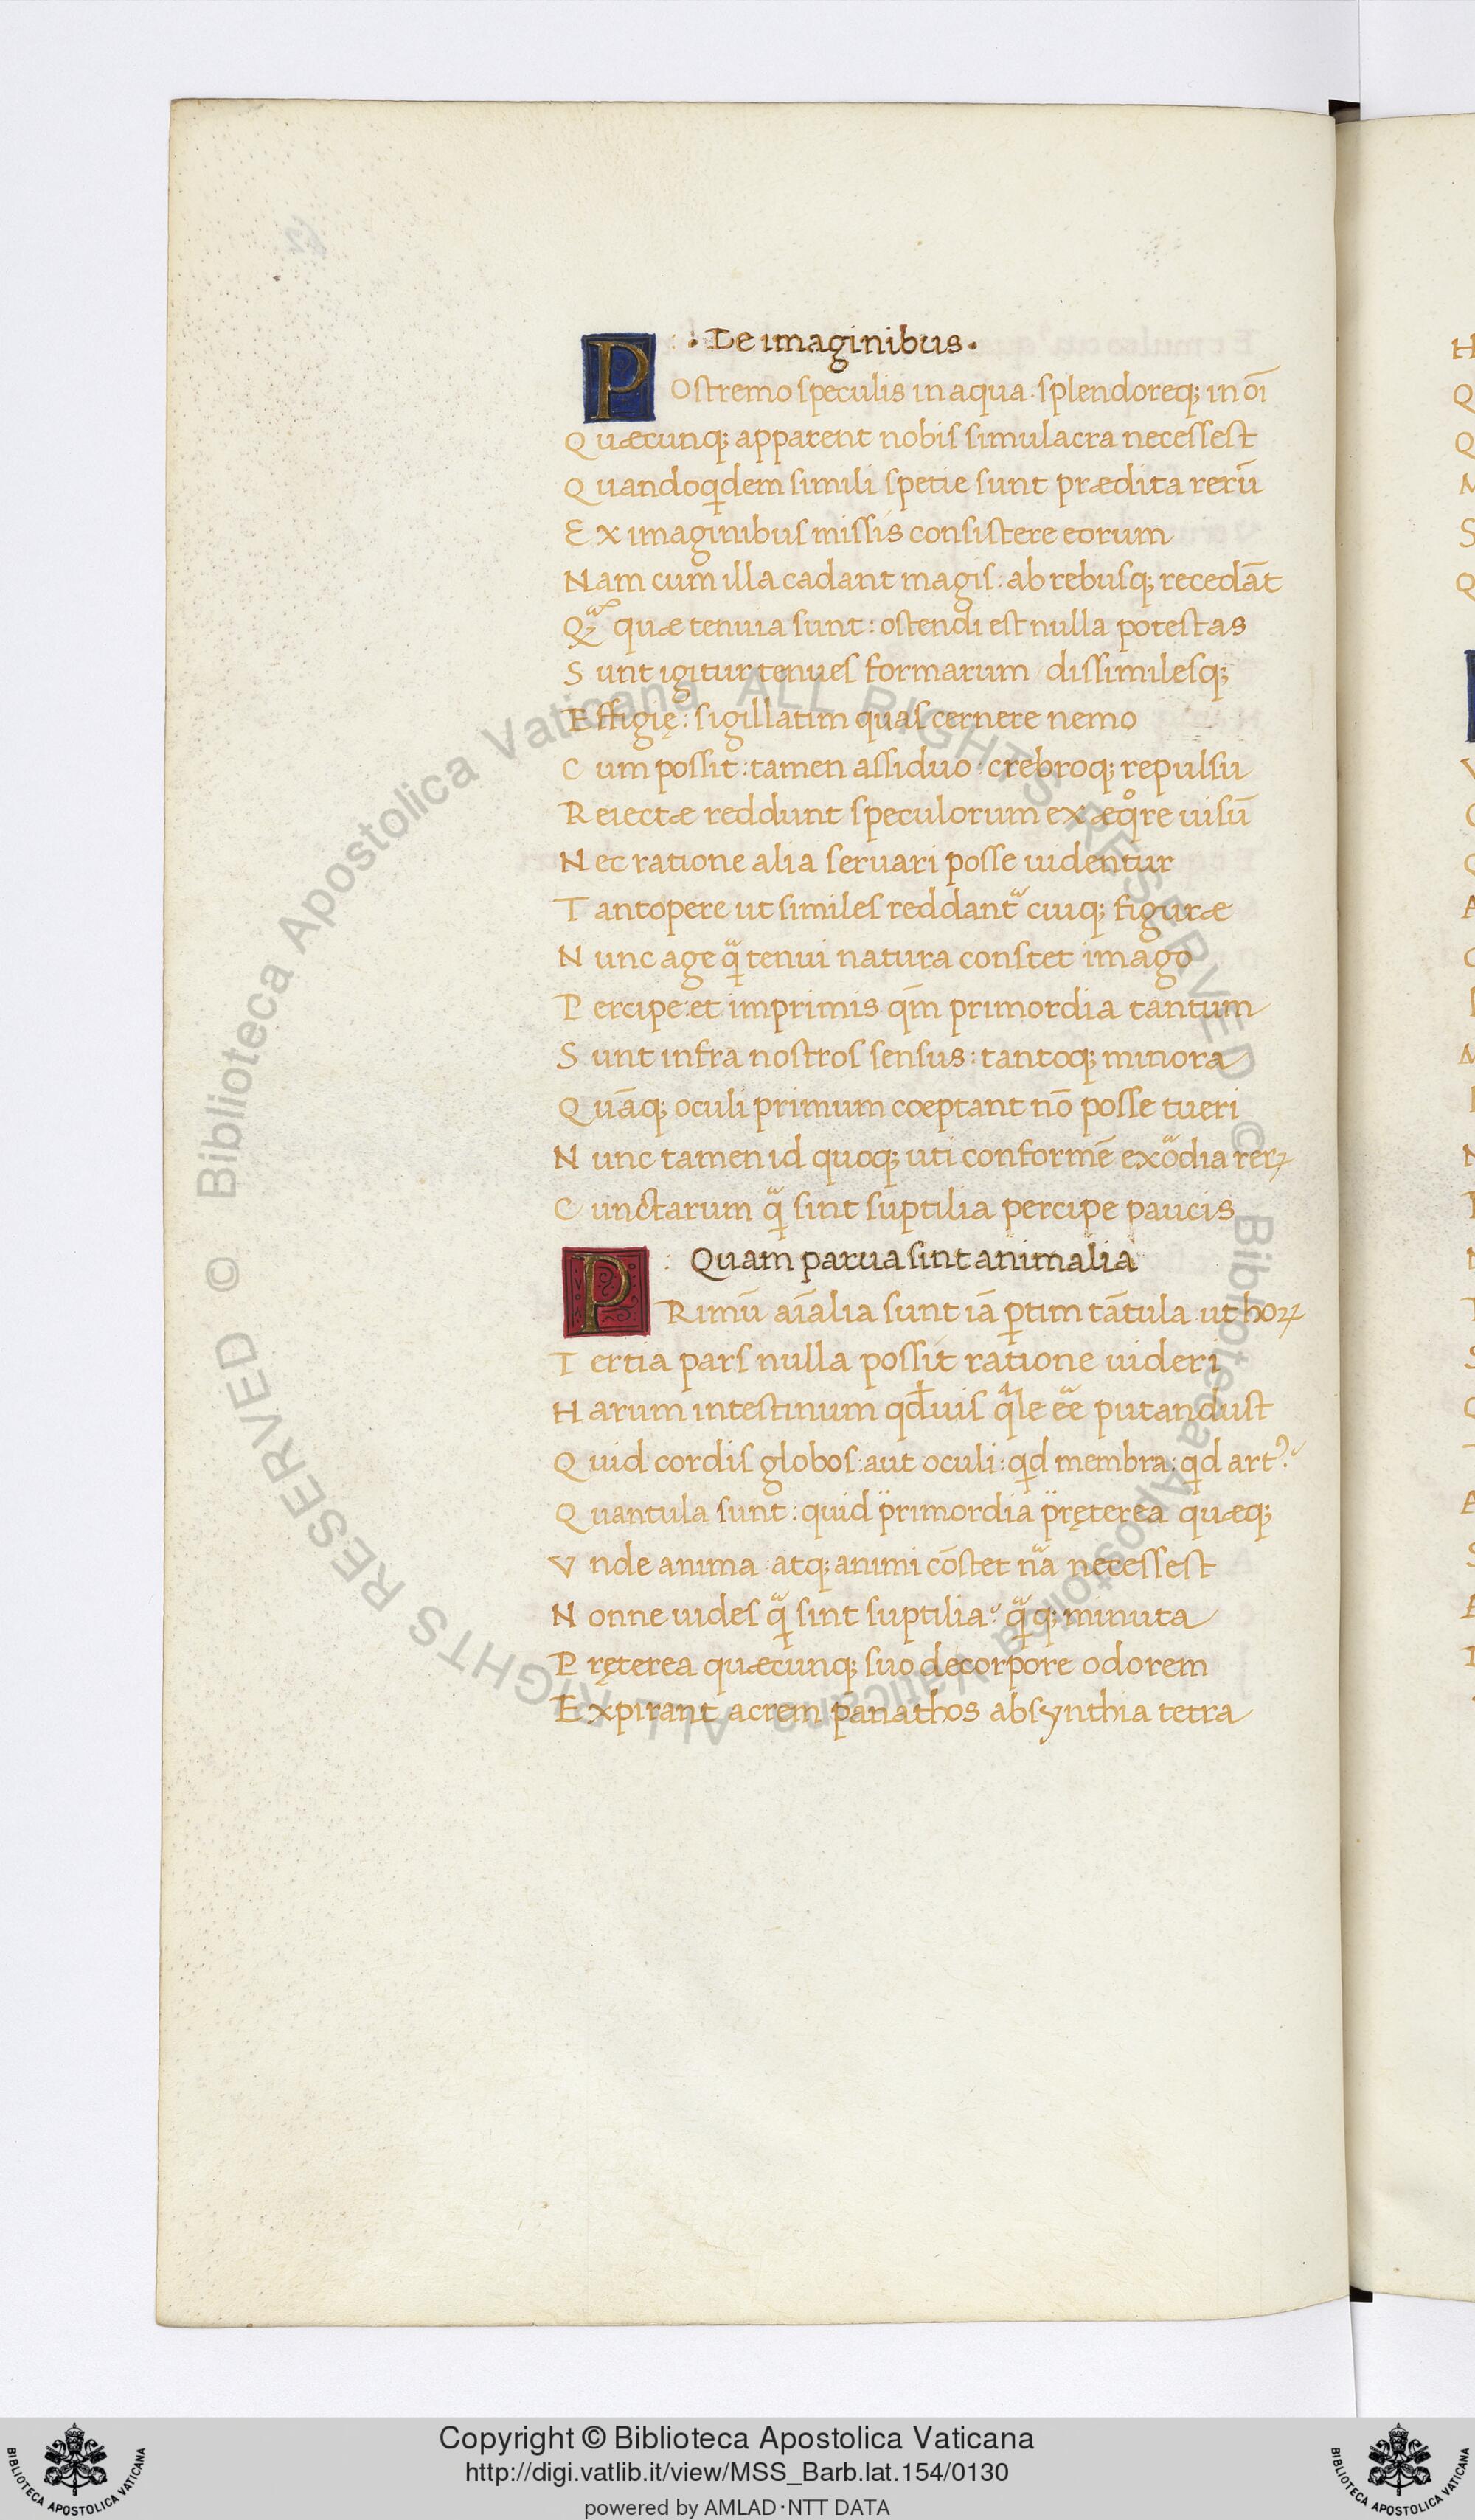 · De imaginibus ·
POstremo speculis in aqua · splendoreq; in oī
Quæcunq; apparent nobis simulacra necessest
Quandoqdem simili spetie sunt prædita rerū
Ex imaginibus missis consistere eorum
Nam cum illa cadant magis : ab rebusq; recedāt
quæ tenuia sunt : ostendi est nulla potestas
Sunt igitur tenues formarum dissimilesq;
Effigię : sigillatim quas cernere nemo
Cum possit : tamen assiduo · crebroq; repulsu
Reiectæ reddunt speculorum ex æqͦre uisū
Nec ratione alia seruari posse uidentur
Tantopere ut similes reddant᷑ cuiq; figuræ
Nunc age qᷓ tenui natura constet imago
Percipe : et imprimis · qm̄ primordia tantum
Sunt infra nostros sensus : tantoq; minora
Quāq; oculi primum cœptant nō posse tueri
Nunc tamen id quoq; uti conformē exoᷓdia rerꝝ
Cunctarum qᷓ sint suptilia percipe paucis
Quam parua sint animalia
PRimū aīalia sunt iā ꝑtim tātula ut hoꝝ
Tertia pars nulla possit ratione uideri
Harum intestinum qduis qͣle eē putandust
Quid cordis globos : aut oculi : qd membra : qd art⁹?
Quantula sunt : quid primordia pręterea quæq;
Vnde anima · atq; animi cōstet nᷓa necessest
Nonne uides qᷓ sint suptilia? qᷓq; minuta
Pręterea quæcunq; suo de corpore odorem
Expirant acrem panathos absynthia tetra
H
Q
Q
M
S
Q
Copyright © Biblioteca Apostolica Vaticana
http://digi.vatlib.it/view/MSS_Barb.lat.154/0130
powered by AMLAD·NTT DATA
BIBLIOTECA APOSTOLICA VATICANA
BIBLIOTECA APOSTOLICA VATICANA
© Biblioteca Apostolica Vaticana ALL RIGHTS RESERVED © Biblioteca Apostolica Vaticana ALL RIGHTS RESERVED